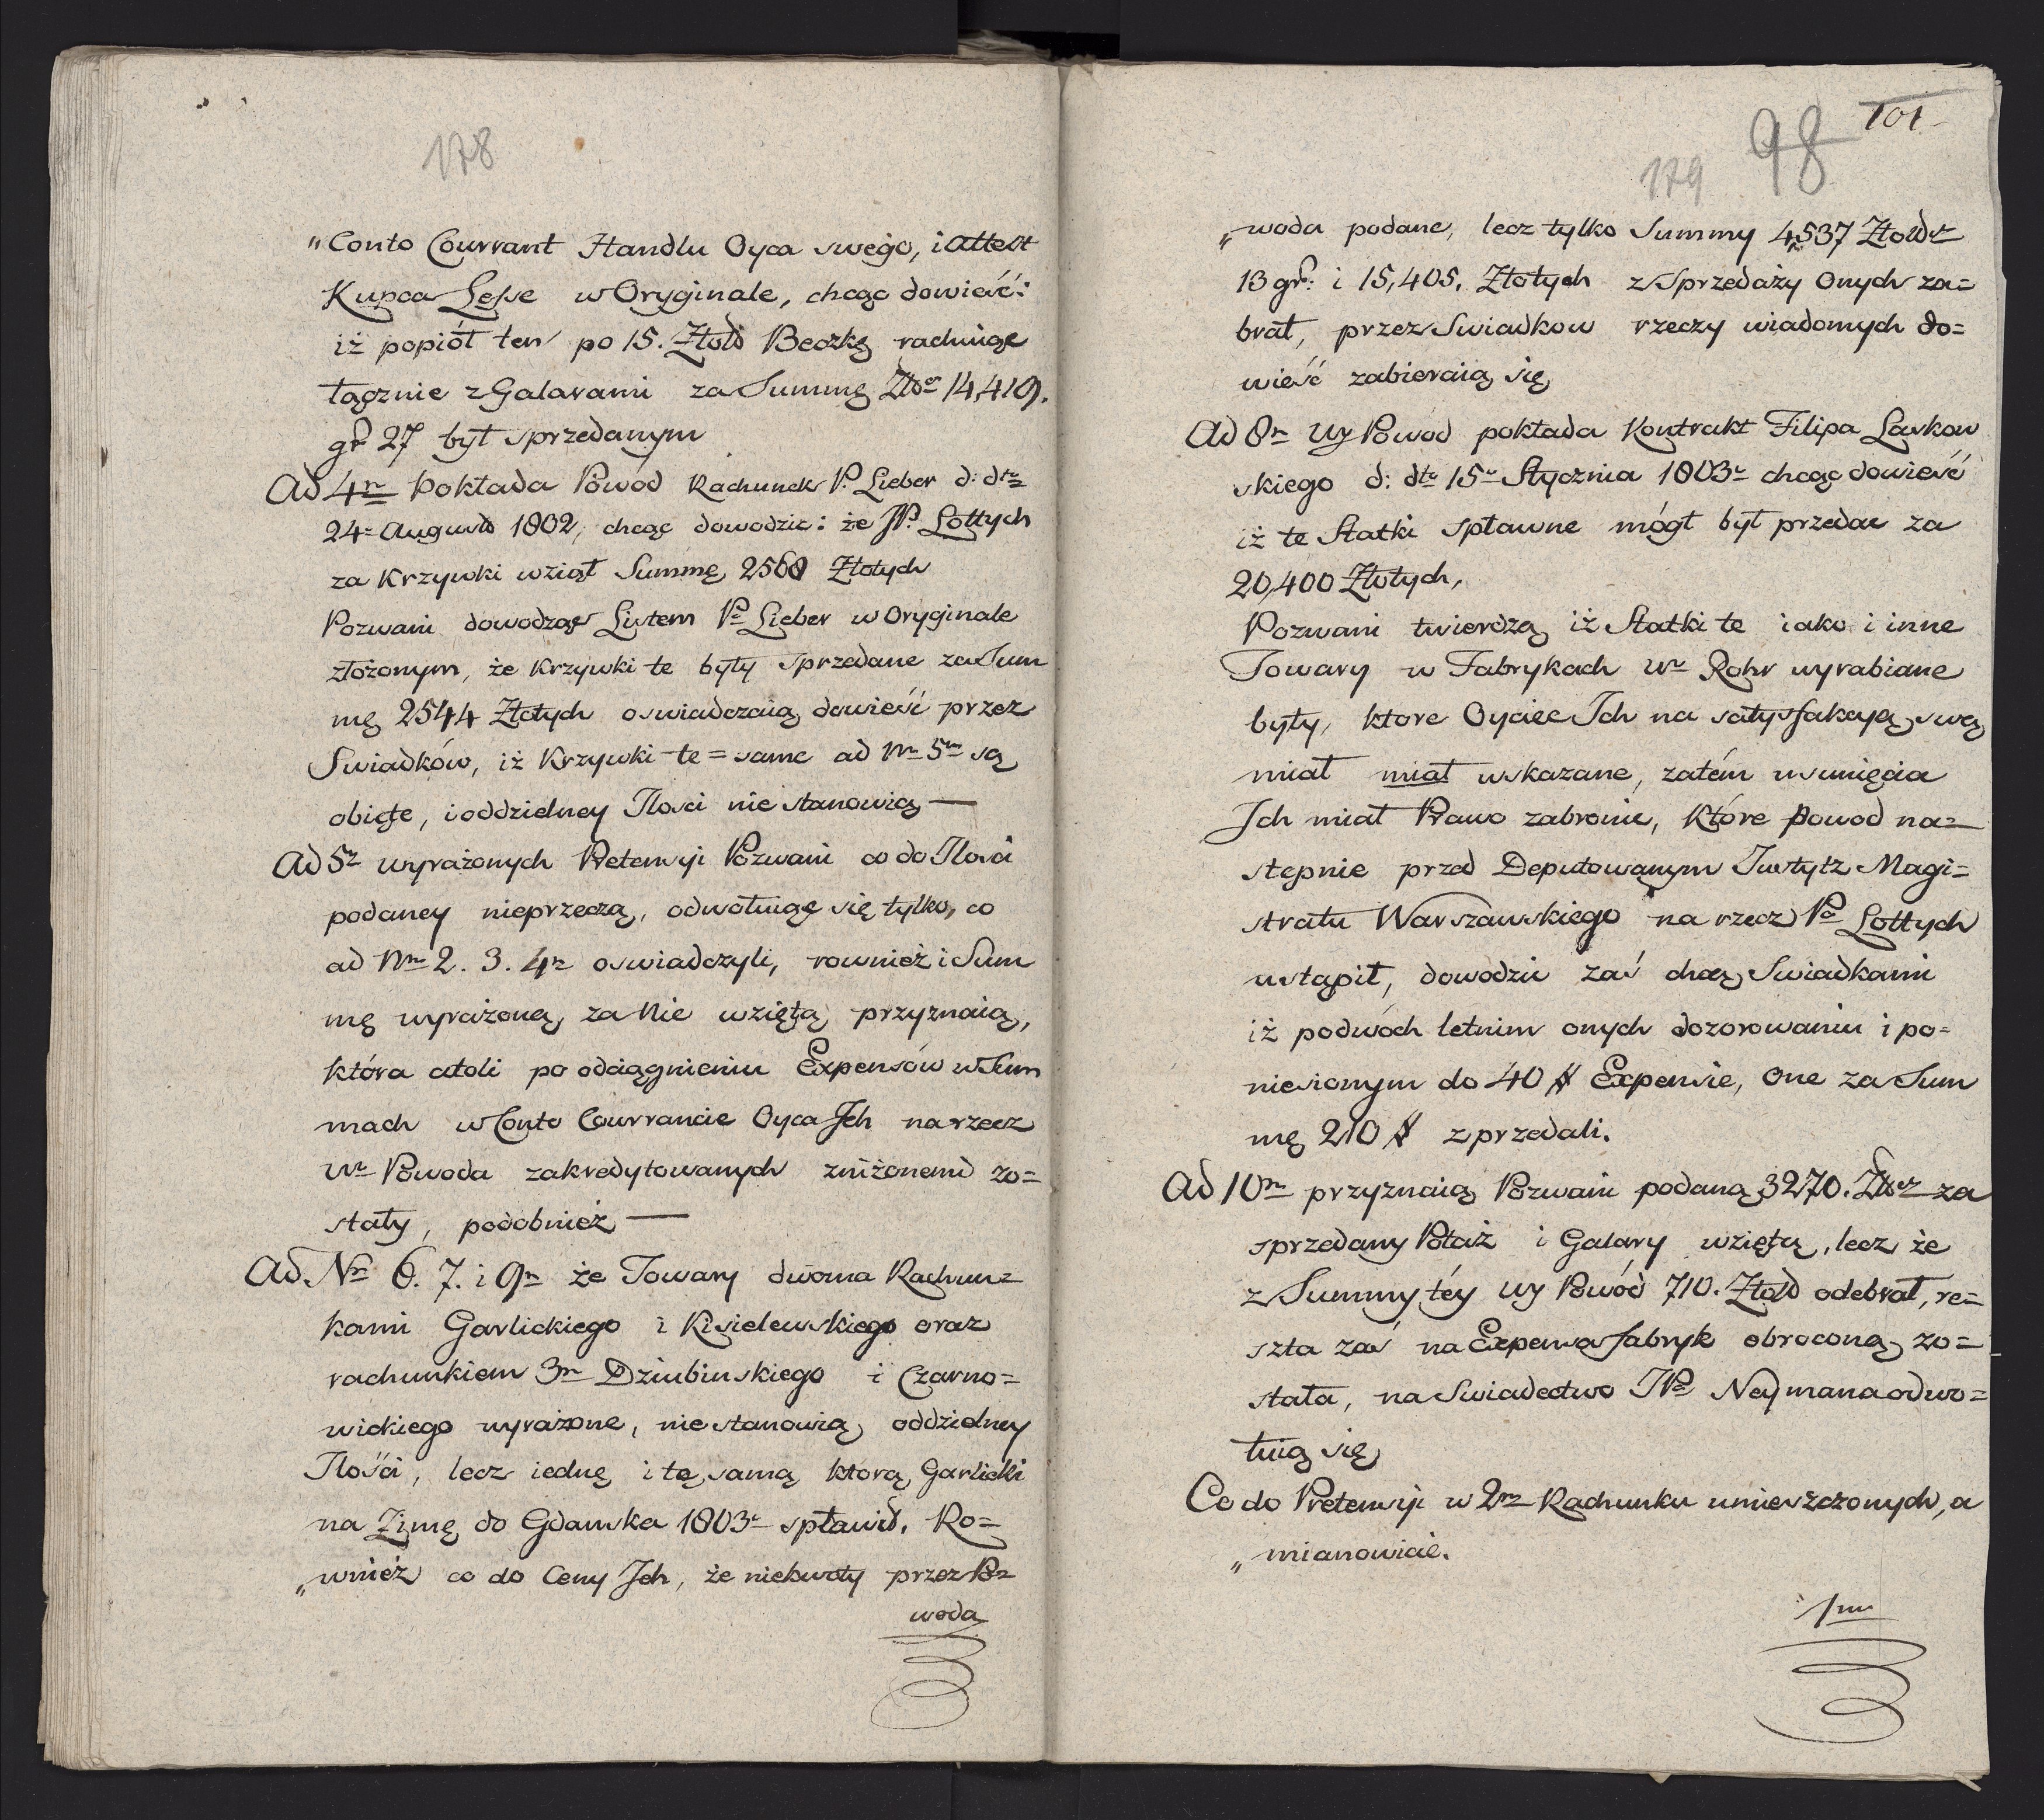 178
„Conto Courrant Handlu Oyca swego, i Attest
Kupca Lesse w Oryginale, chcąc dowieść:
iż popiół ten po 15. Złotd Beczkę rachuiąc
łącznie z Galarami za Summę Złtor 14,419.
gr 27 był sprzedanym
Ad 4m Pokłada Powod Rachunek P. Lieber d: dto
24= Augusto 1802, chcąc dowodzić: że JP. Lottych
za Krzywki wziął Summę 2568 Złotych
Pozwani dowodząc Listem Pa Lieber w Oryginale
złożonym, że Krzywki te były sprzedane za Sum
mę 2544 Złotych oswiadczaią dowieść przez
Swiadków, iż Krzywki te=same ad Nm 5m są
obięte, i oddzielney Ilosci nie stanowią —
Ad 5m wyrażonych Pretensyi Pozwani co do Ilosci
podaney nieprzeczą, odwołuiąc się tylko, co
ad Nm 2. 3. 4m oswiadczyli, rownież i Sum
mę wyrażoną za Nie wziętą przyznaią,
która atoli po odciągnieniu Expensów w Sum
mach w Conto Courrancie Oyca Jch na rzecz
Wo Powoda zakredytowanych zniżonemi zo=
stały, podobnież —
Ad Nm 6. 7. i 9m że Towary dwoma Rachun=
kami Garlickiego i Kisielewskiego oraz
rachunkiem 3m Dziubinskiego i Czarno=
wickiego wyrażone, nie stanowią oddzielney
Ilości, lecz iednę i tę samą ktorą Garlicki
na Zimę do Gdanska 1803o spławił. Ro=
„wnież co do Ceny Jch, że niekwoty przez Po=
woda
101
98
179
„woda podane, lecz tylko Summy 4,537 Złotdt
13 gr: i 15,405. Złotych z Sprzedaży Onych za=
brał, przez Swiadkow rzeczy wiadomych do=
wieść zabieraią się
Ad 8m Wy Powod pokłada Kontrakt Filipa Laskow
skiego d: dto 15o Stycznia 1803o chcąc dowieść
iż te Statki spławne mógł był przedać za
20,400 Złotych,
Pozwani twierdzą iż Statki te iako i inne
Towary w Fabrykach Wo Rohr wyrabiane
były, ktore Oyciec Jch na satysfakcyą swą
miał miał wskazane, zatém usunięcia
Jch miał Prawo zabronić, Które Powod na=
stepnie przed Deputowanym Justytz Magi=
stratu Warszawskiego na rzecz Pa Lottych
ustąpił, dowodzić zaś chcą Swiadkami
iż podwóch letnim onych dozorowaniu i po=
niesionym do 40 # Expensie, One za Sum
mę 210 # zprzedali.
Ad 10m przyznaią Pozwani podaną 3270. Złtor za
sprzedany Potaż i Galary wziętą, lecz że
z Summy téy Wy Powód 710. Złotd odebrał, re=
szta zaś na Expensa fabryk obrocona zo=
stała, na Swiadectwo JPa Neymana odwo=
łuią się
Co do Pretensyi w 2m Rachunku umieszczonych, a
„mianowicie.
1mo